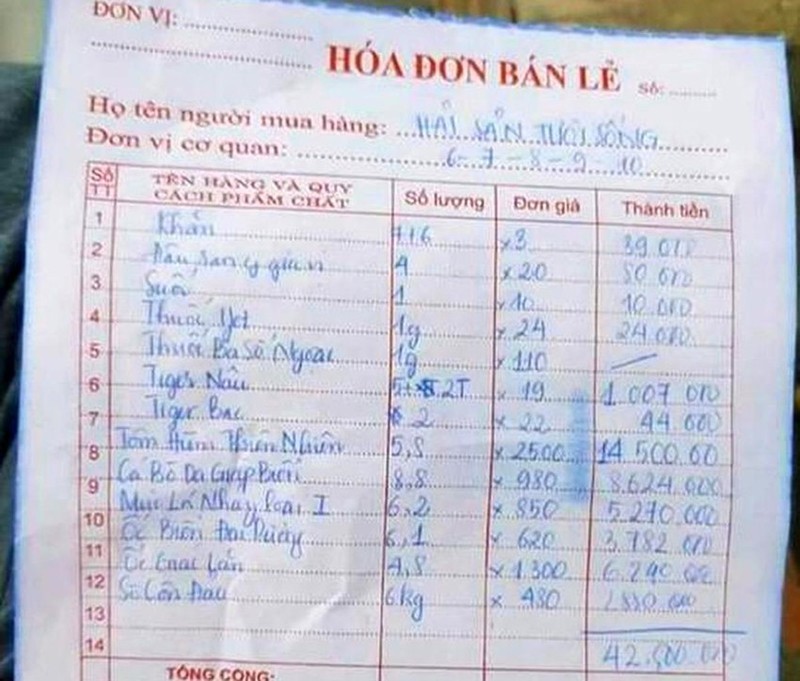 ĐƠN VỊ:
HÓA ĐƠN BÁN LẺ Số:
Họ tên người mua hàng: HẢI SẢN TƯƠI SỐNG
Đơn vị cơ quan: 6-7-8-9-10
Số TT TÊN HÀNG VÀ QUY CÁCH PHẨM CHẤT Số lượng Đơn giá Thành tiền
1 Khăn x3
2 x20
3 Suối 1 x10 10.000
4 Thuốc 1g x24 24.000
5 Thuốc Ba Số Ngoại 1g x110
6 Tiger Nâu x 19 1.007 000
7 Tiger Bạc 2 x 22 44.000
8 Tôm Hùm Thiên Nhiên 5,8 x 2500 14 500.00
9 Cá Bò Da Giáp Biển 8,8 x 980 8.624.000
10 Mực Lá Nháy loại I 6,2 x 850 5.270.000
11 Ốc Biển Đại Dương 6,1 x 620 3.782 000
12 Ốc 4,8 x 1300 6.240 000
13 Sò Côn Đảo 6kg x 480
14
TỔNG CỘNG: